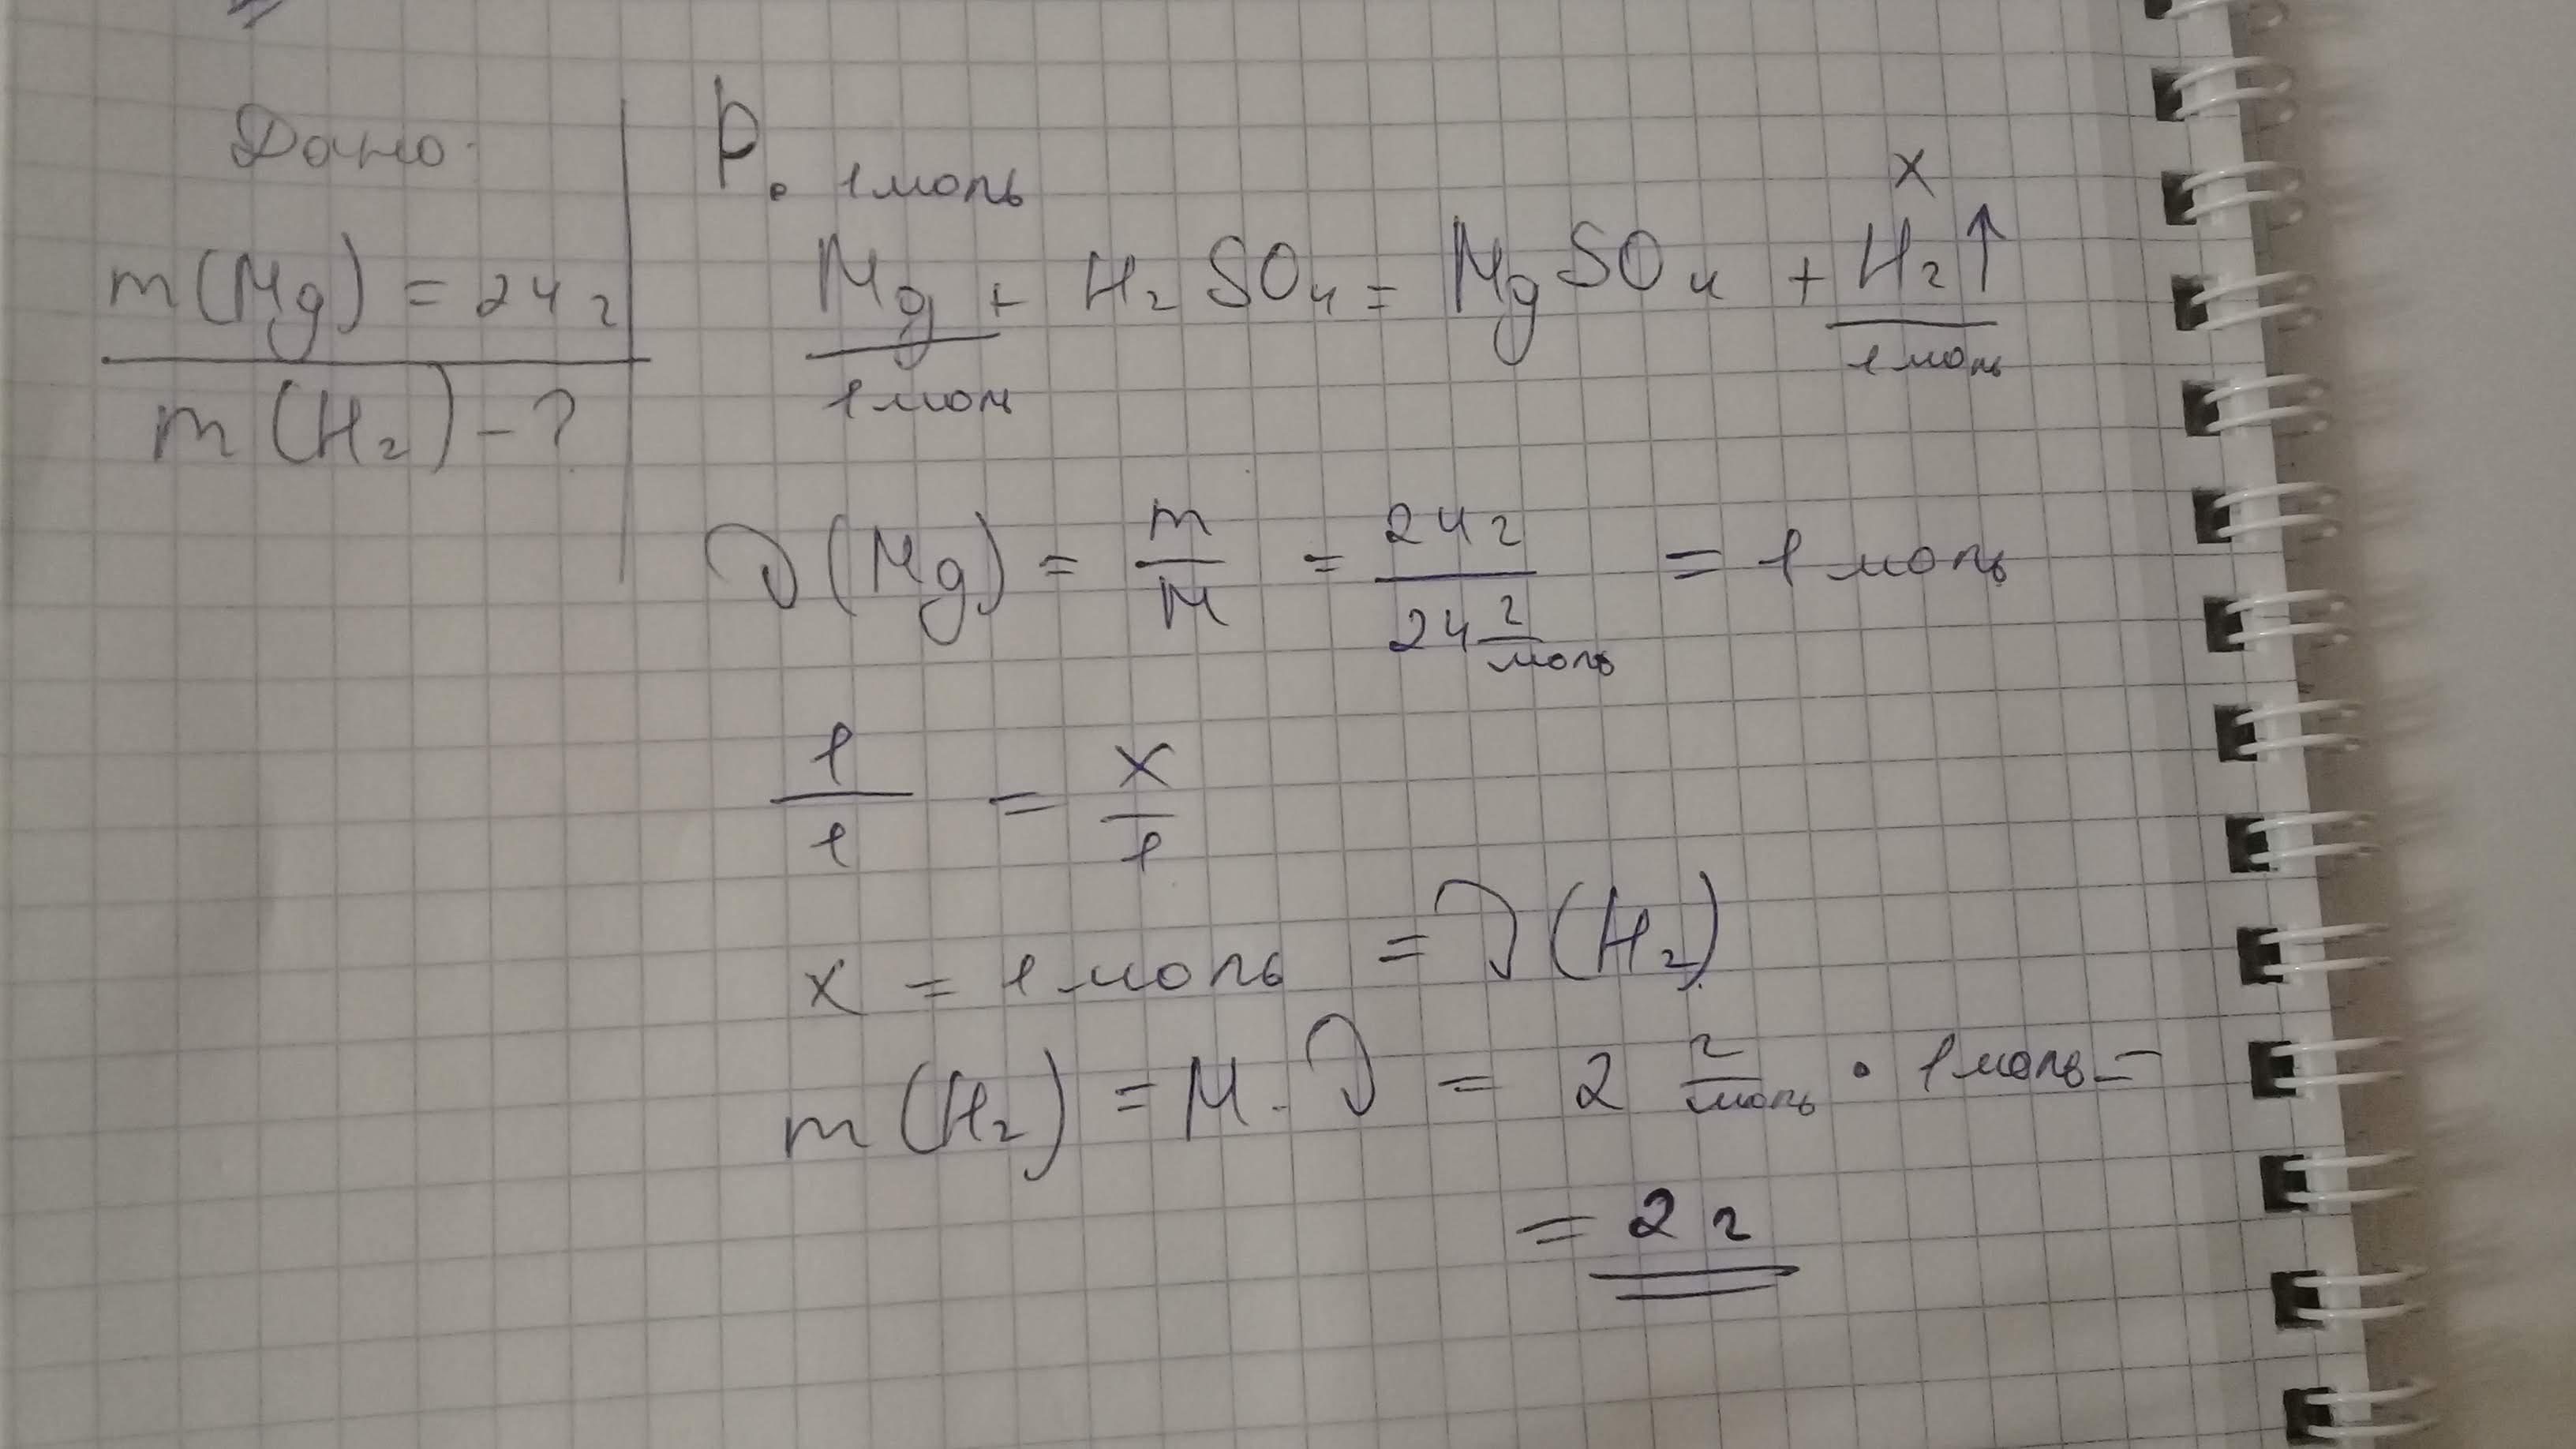 Дано.
m(Mg) = 24 г
m(H₂) - ?
Р.
1 моль
x
Mg + H₂SO₄ = MgSO₄ + H₂↑
1 моль
1 моль
ν(Mg) = m/M = 24 г / 24 г/моль = 1 моль
1/1 = x/1
x = 1 моль = ν(H₂)
m(H₂) = M · ν = 2 г/моль · 1 моль =
= 2 г